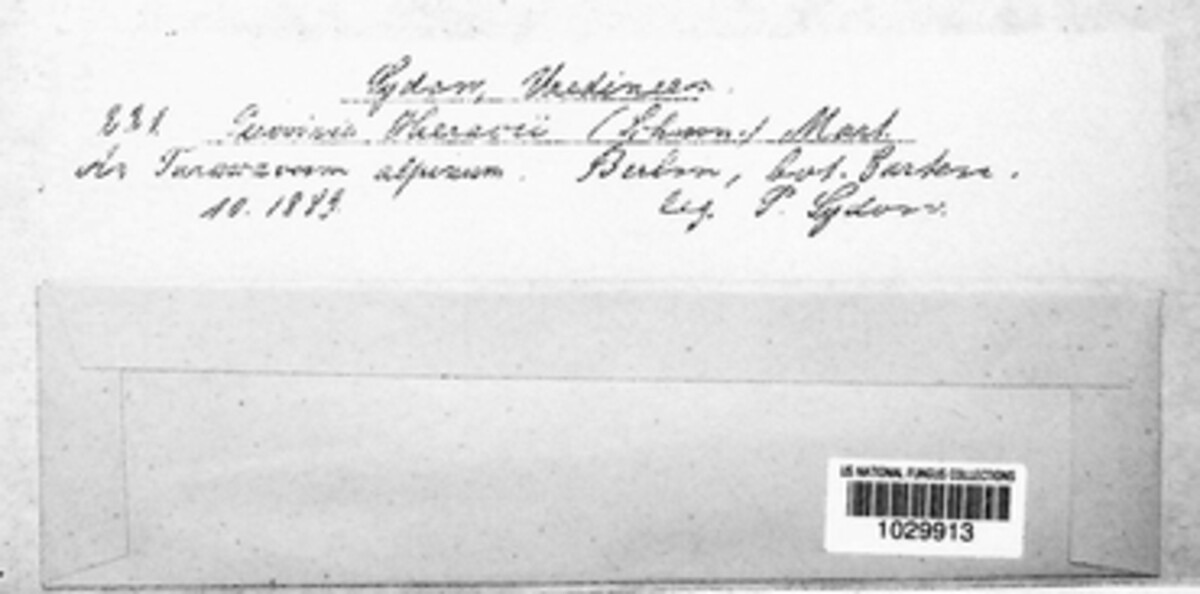 Sydow, Uredineen.
Puccinia Hieracii (Schum.) Mart.
An Taraxacum alpinum. Berlin, bot. Garten.
10. 1889. leg. P. Sydow.
US NATIONAL FUNGUS COLLECTIONS
1029913